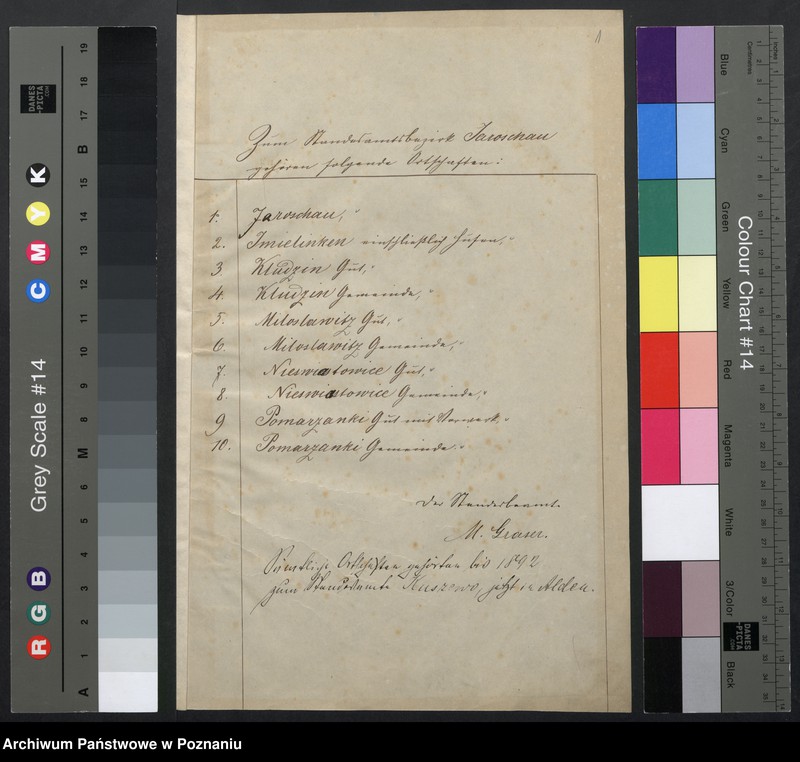 1
Zum Standesamtsbezirk Jaroschau
gehören folgende Ortschaften:
1. Jaroschau,
2. Imielinken einschließlich Hufen,
3 Kludzin Gut,
4. Kludzin Gemeinde,
5. Miloslawitz Gut,
6. Miloslawitz Gemeinde,
7. Nieswiastowice Gut,
8. Nieswiastowice Gemeinde,
9 Pomarzanki Gut mit Vorwerk,
10. Pomarzanki Gemeinde.
Der Standesbeamte.
M. Graser.
Sämtliche Ortschaften gehörten bis 1892
zum Standesamte jetzt in Alden.
Grey Scale #14
R G B C M Y K
A 1 2 3 4 5 6 M 8 9 10 11 12 13 14 15 B 17 18 19
DANES-PICTA.COM
Colour Chart #14
Blue
Cyan
Green
Yellow
Red
Magenta
White
3/Color
Black
Centimetres
Inches
DANES-PICTA.COM
Archiwum Państwowe w Poznaniu